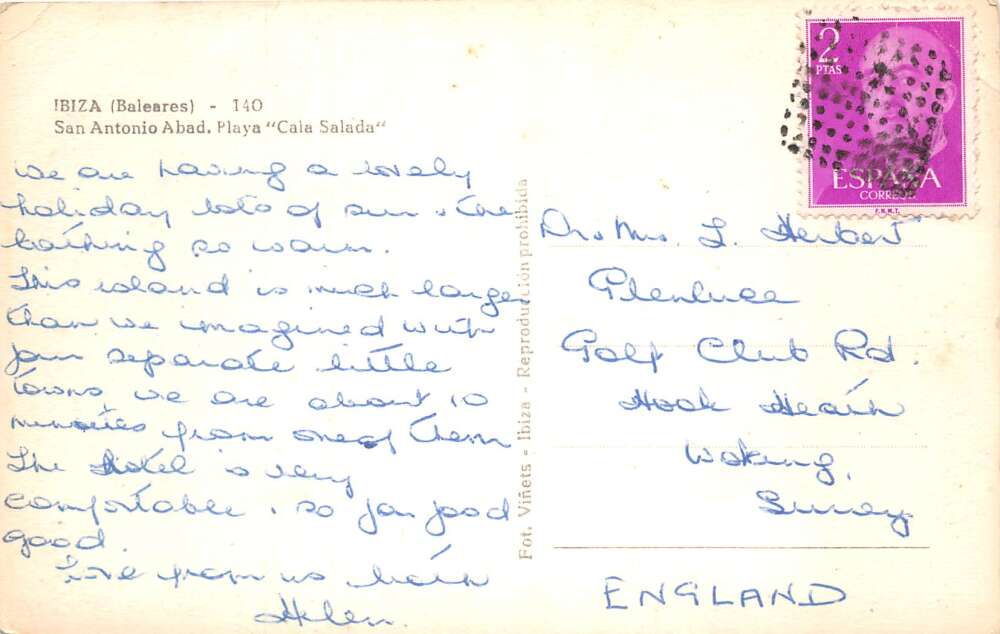 IBIZA (Baleares) - 140
San Antonio Abad. Playa "Cala Salada"
We are having a lovely
holiday lots of sun & the
bathing so warm.
This island is much larger
than we imagined with
four separate little
towns, we are about 10
minutes from one of them
The Hotel is very
comfortable, so far food
good.
Love from us both
Helen.
Fot. Viñets - Ibiza - Reproducción prohibida
2
PTAS
ESPAÑA
CORREOS
F.N.M.T.
Dr & Mrs. L. Herbert
Glenluce
Golf Club Rd.
Hook Heath
Woking,
Surrey
ENGLAND